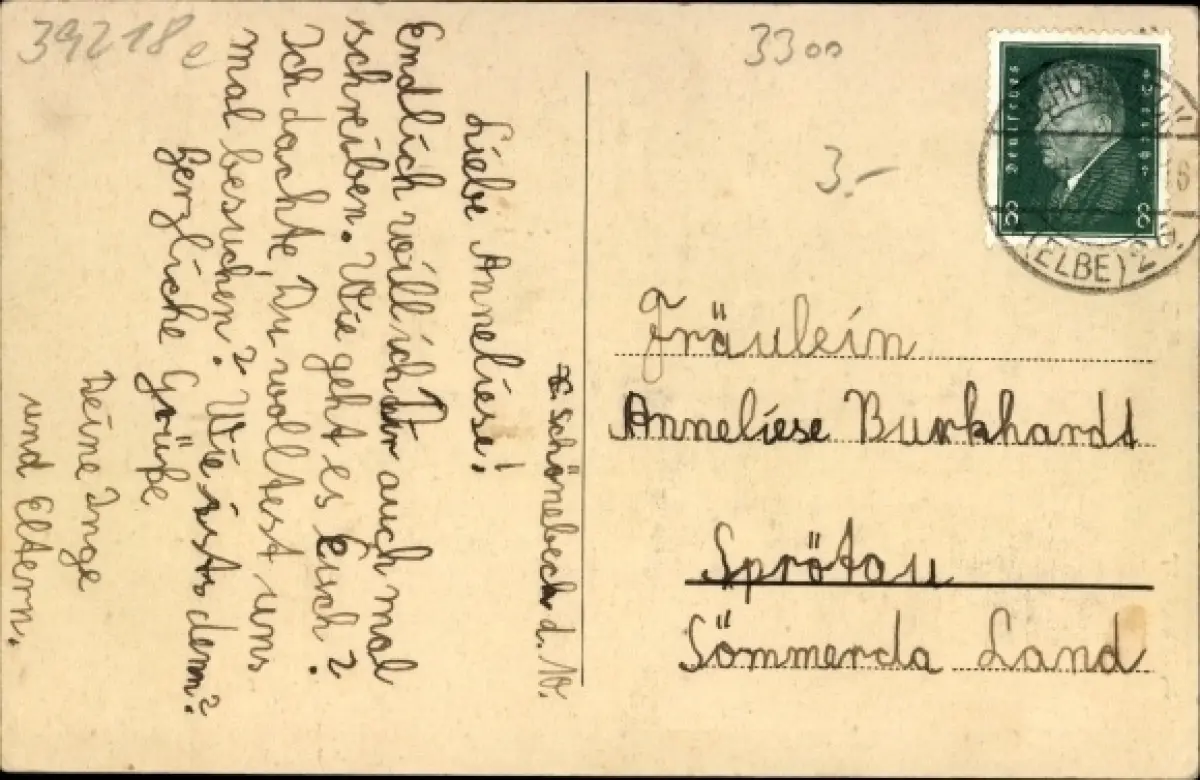 39218e
3300
3.-
Schönebeck. d. 10.
Liebe Anneliese!
Endlich will ich Dir auch mal
schreiben. Wie geht es Euch?
Ich dachte, Du wolltest uns
mal besuchen? Wie ists denn?
Herzliche Grüße
Deine Inge
und Eltern.
Deutsches Reich
8 8
(ELBE) 2
Fräulein
Anneliese Burkhardt
Sprötau
Sömmerda Land